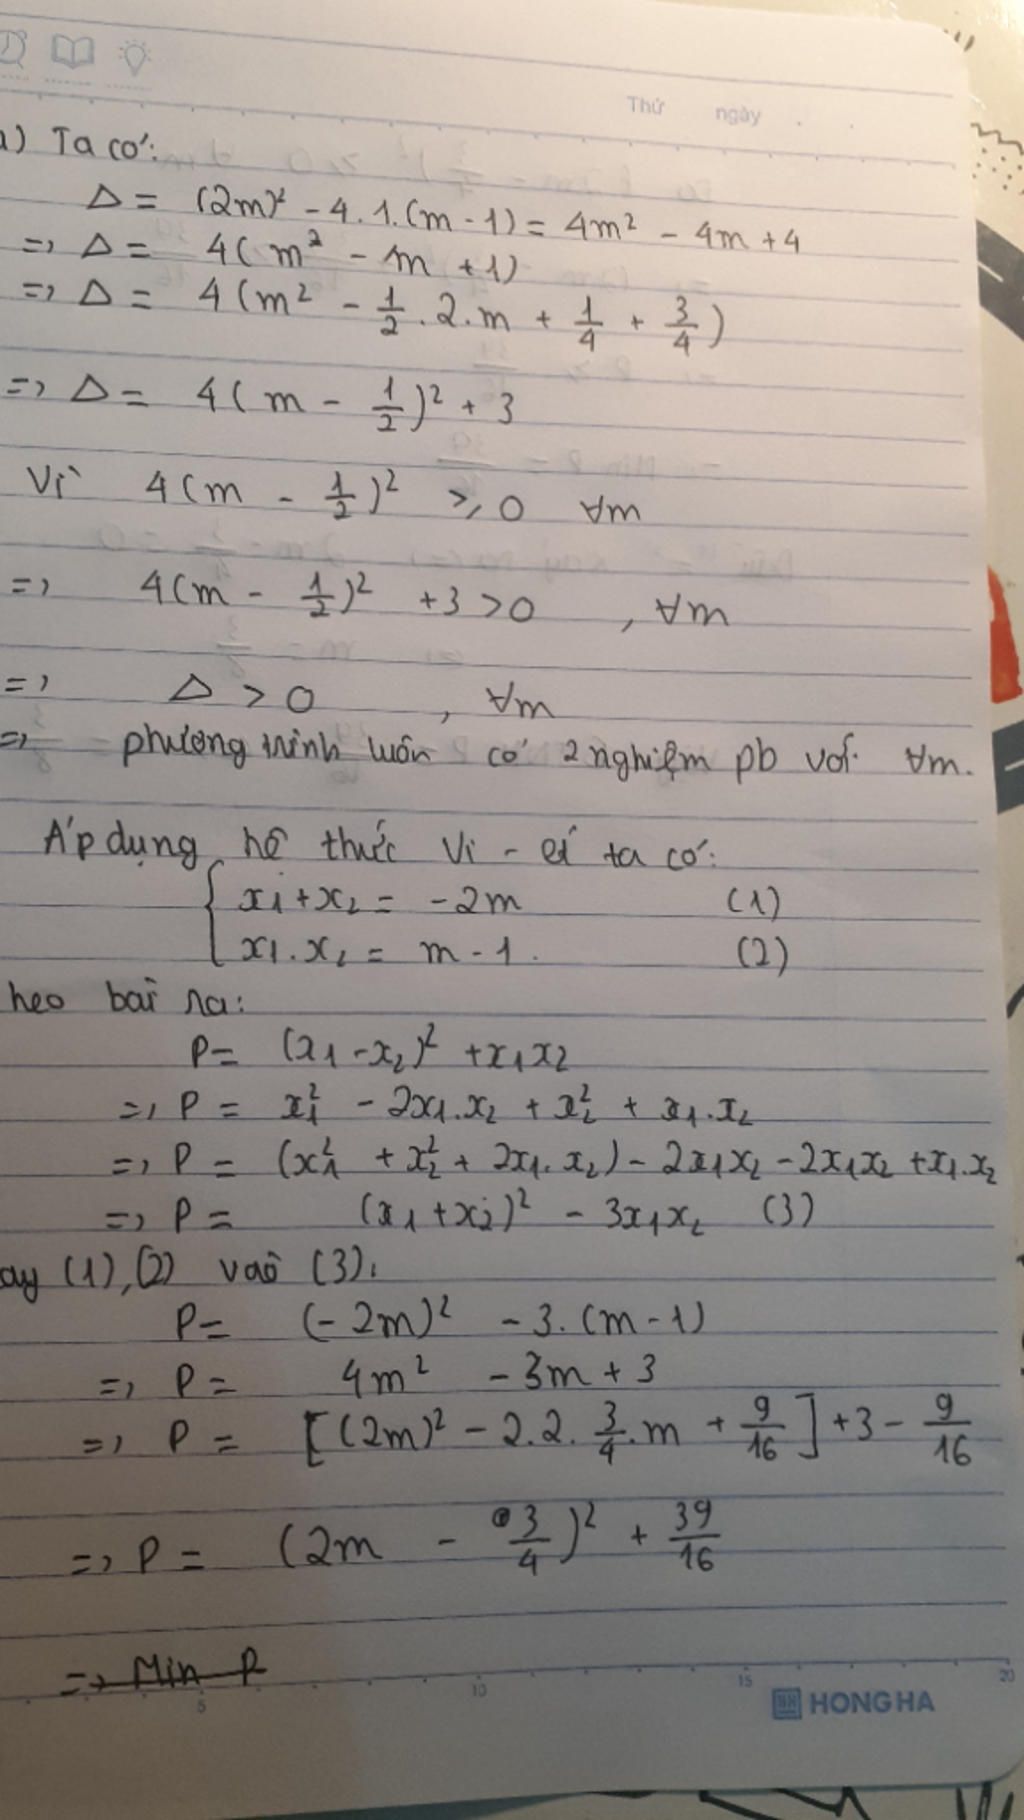 Thứ ngày
a) Ta có:
Δ = (2m)² - 4.1.(m - 1) = 4m² - 4m + 4
=> Δ = 4(m² - m + 1)
=> Δ = 4(m² - 1/2 . 2 . m + 1/4 + 3/4)
=> Δ = 4(m - 1/2)² + 3
Vì 4(m - 1/2)² ≥ 0 ∀m
=> 4(m - 1/2)² + 3 > 0 , ∀m
=> Δ > 0 , ∀m
=> phương trình luôn có 2 nghiệm pb với ∀m.
Áp dụng hệ thức Vi - ét ta có:
{ x₁ + x₂ = -2m (1)
x₁ . x₂ = m - 1 . (2)
heo bài ra:
P = (x₁ - x₂)² + x₁x₂
=> P = x₁² - 2x₁.x₂ + x₂² + x₁.x₂
=> P = (x₁² + x₂² + 2x₁.x₂) - 2x₁x₂ - 2x₁x₂ + x₁.x₂
=> P = (x₁ + x₂)² - 3x₁x₂ (3)
ay (1), (2) vào (3):
P = (-2m)² - 3.(m - 1)
=> P = 4m² - 3m + 3
=> P = [(2m)² - 2.2. 3/4 .m + 9/16] + 3 - 9/16
=> P = (2m - 3/4)² + 39/16
=> Min P
5 10 15 20
HONG HA